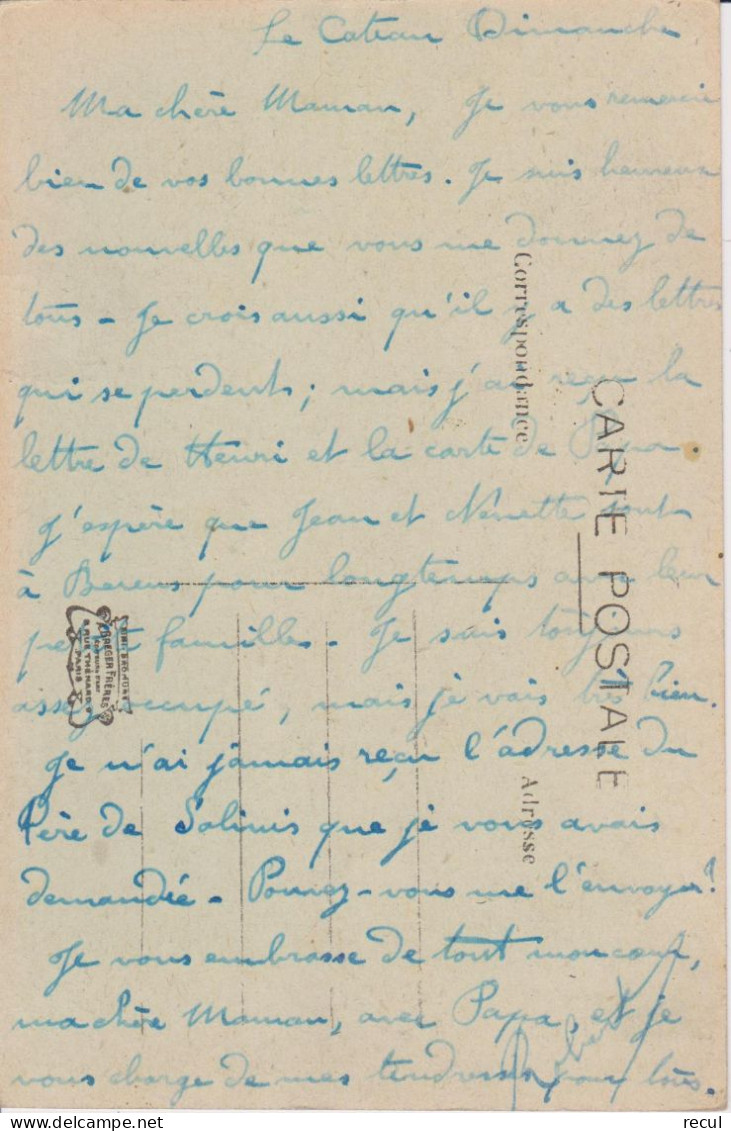 Le Cateau Dimanche
Ma chère Maman, Je vous remercie
bien de vos bonnes lettres. Je suis heureux
des nouvelles que vous me donnez de
tous - Je crois aussi qu'il y a des lettres
qui se perdent; mais j'ai reçu la
lettre de Henri et la carte de Papa
J'espère que Jean et Nénette sont
à pour longtemps avec leur
petite familles. Je suis toujours
assez occupé, mais je vais très bien.
Je n'ai jamais reçu l'adresse du
Père de Salinis que je vous avais
demandée - Pouvez-vous me l'envoyer?
Je vous embrasse de tout mon cœur,
ma chère Maman, avec Papa, et je
vous charge de mes tendresses pour tous.
CARTE POSTALE
Correspondance
Adresse
BREGER FRÈRES
9 RUE THÉNARD 9
PARIS
recul